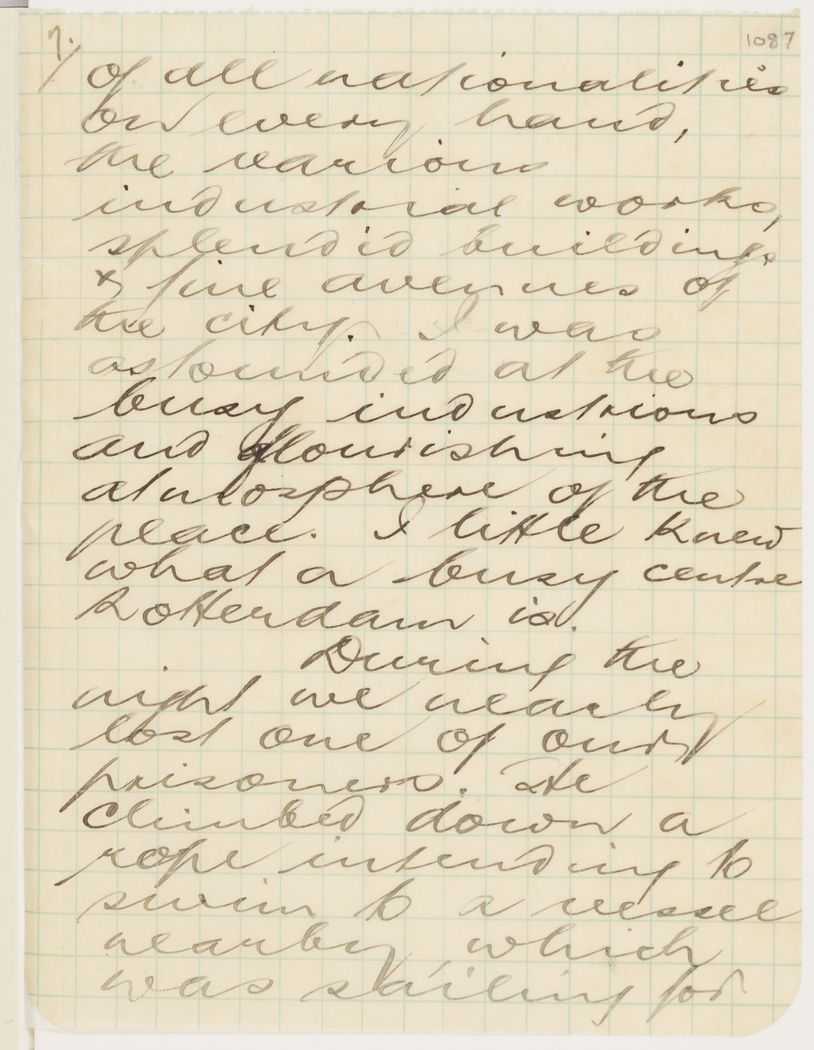 7/ 1087
of all nationalities
on every hand,
the various
industrial works,
splendid buildings
& fine avenues of
the city. I was
astounded at the
busy industrious
and flourishing
atmosphere of the
place. I little knew
what a busy centre
Rotterdam is.
During the
night we nearly
lost one of our
prisoners. He
climbed down a
rope intending to
swim to a vessel
nearby which
was sailing for